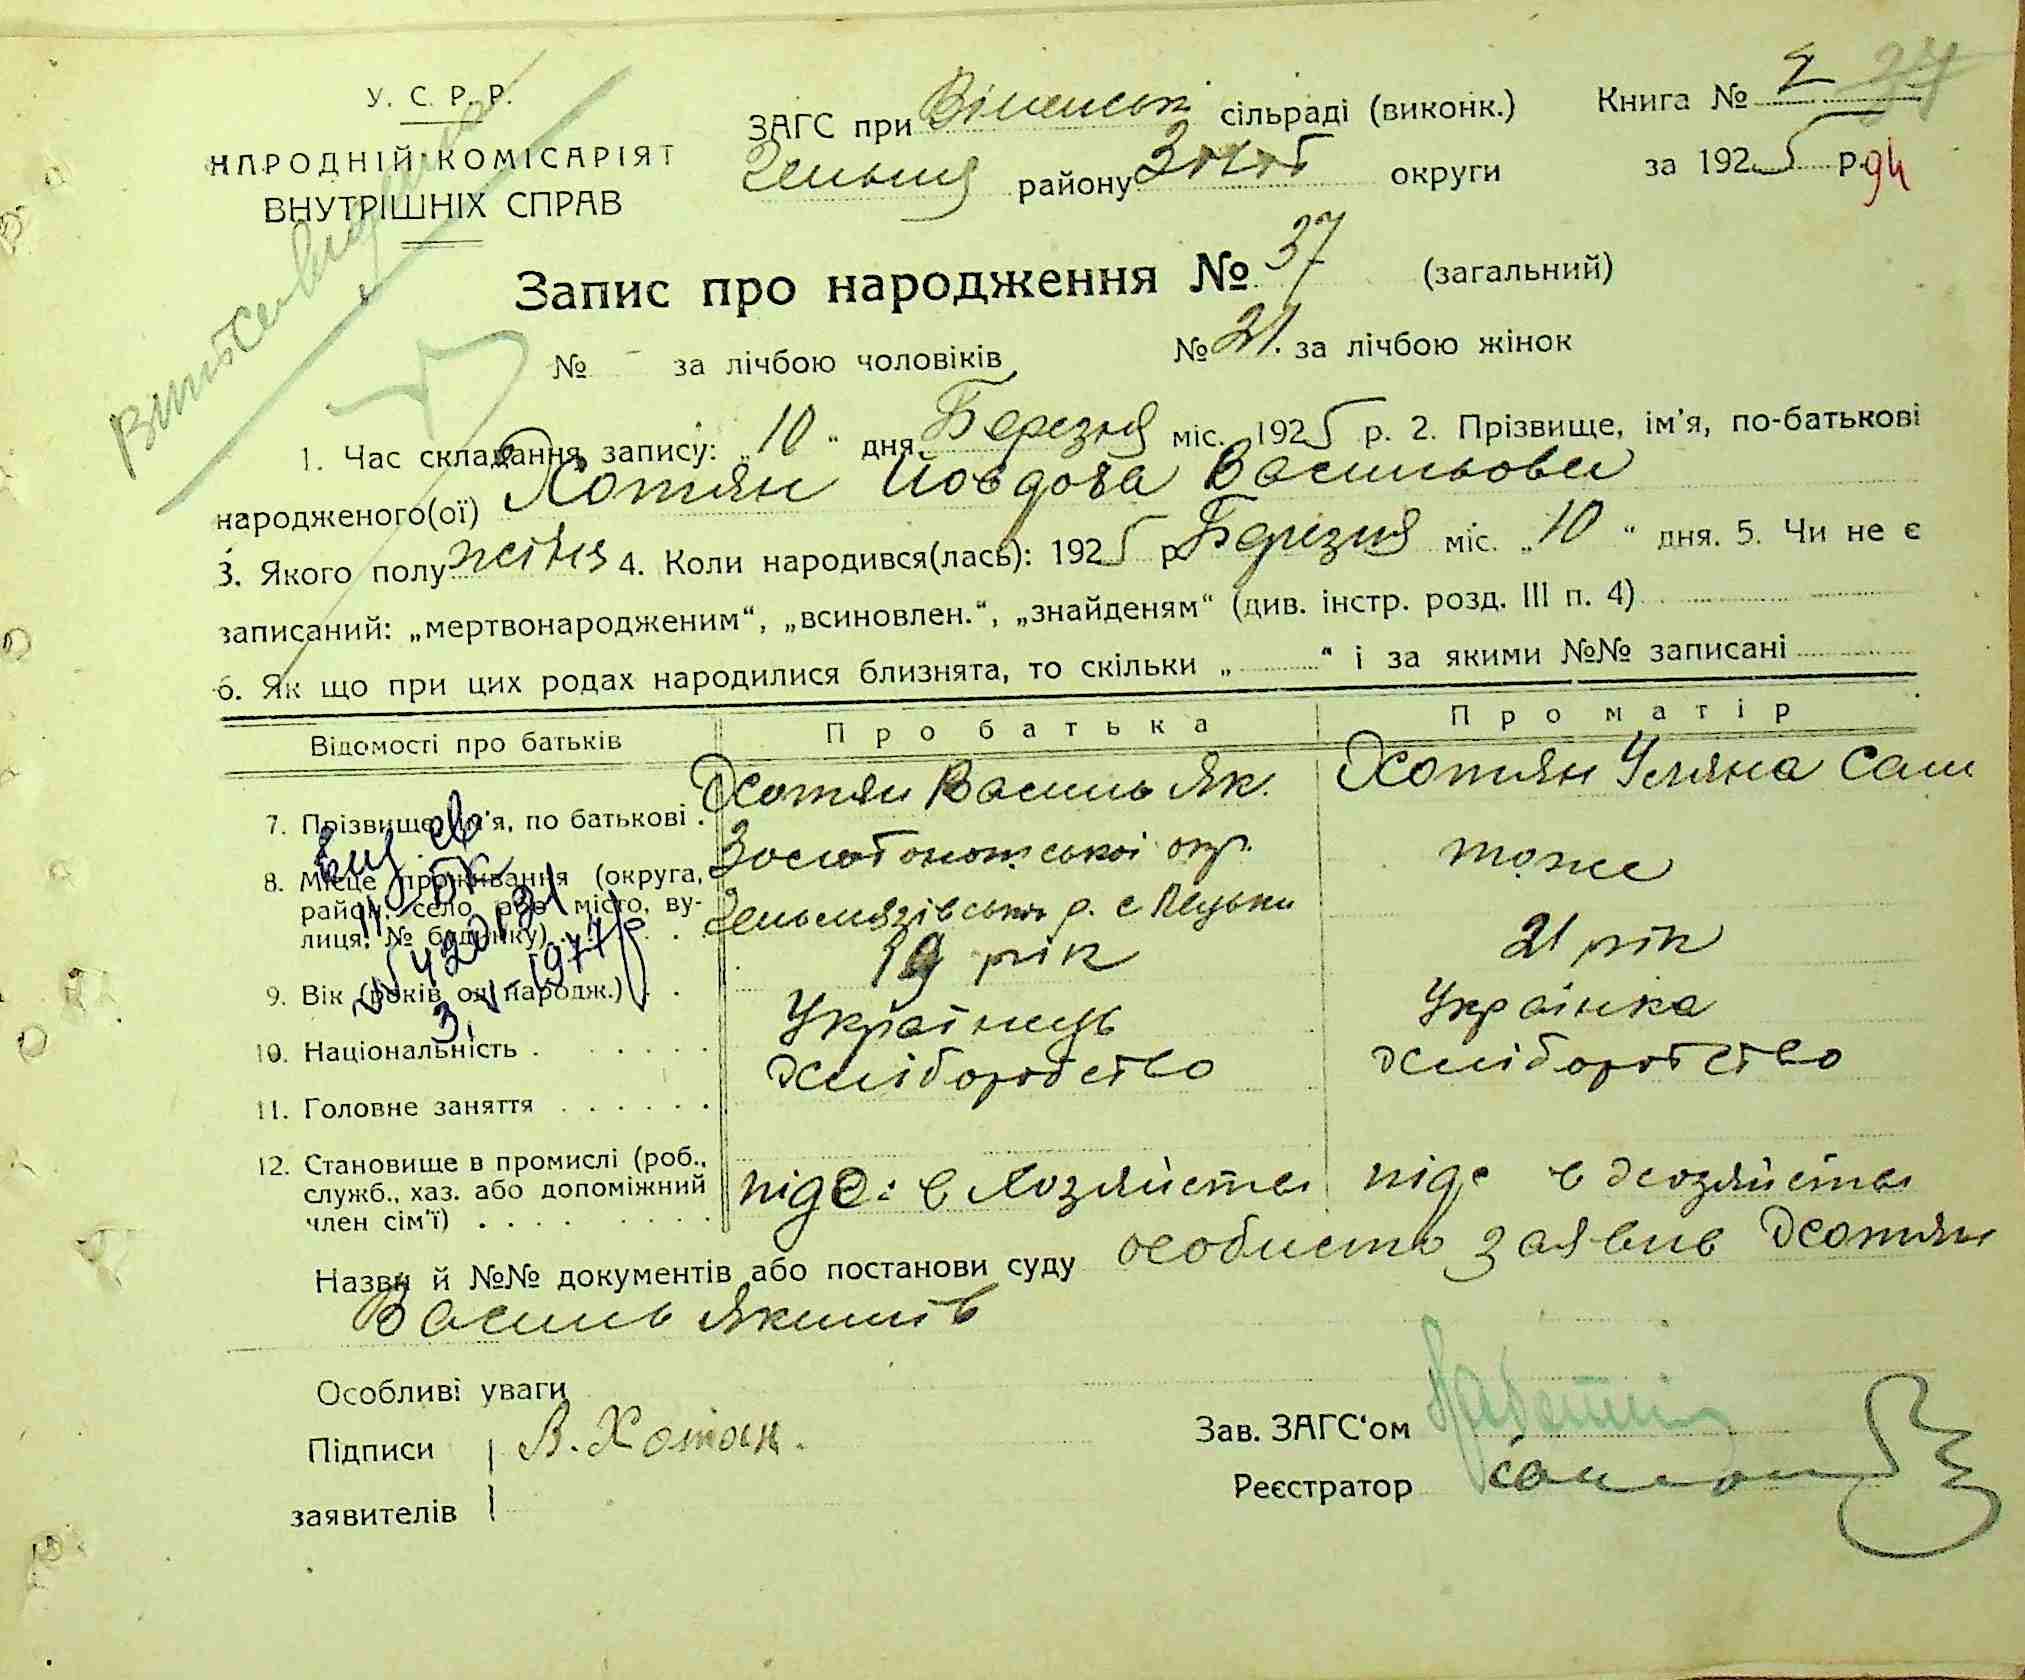 У. С. Р. Р.
НАРОДНІЙ КОМІСАРІЯТ
ВНУТРІШНІХ СПРАВ
ЗАГС при сільраді (виконк.) Книга № 2
району округи за 1925 р. 94
Запис про народження № 37 (загальний)
№ - за лічбою чоловіків № 21. за лічбою жінок
1. Час складання запису: „10“ дня Березня міс. 1925 р. 2. Прізвище, ім'я, по-батькові
народженого(ої) Хотян Йовдоха Васильовна
3. Якого полу 4. Коли народився(лась): 1925 р. Березня міс. „10“ дня. 5. Чи не є
записаний: „мертвонародженим“, „всиновлен.“, „знайденям“ (див. інстр. розд. III п. 4)
6. Як що при цих родах народилися близнята, то скільки „ “ і за якими №№ записані
Відомості про батьків Про батька Про матір
7. Прізвище, ім'я, по батькові . Хотян Василь Як. Хотян Уляна Сам
8. Місце проживання (округа, район, село, або місто, ву-
лиця, № будинку) Золотоношської окр. тоже
р. с
9. Вік (років од народж.) . . 19 рік 21 рік
10. Національність . Українець Українка
11. Головне заняття Хліборобство Хліборобство
12. Становище в промислі (роб.,
служб., хаз. або допоміжний
член сім'ї) . . . . в Хозяйстві в Хозяйстві
Назви й №№ документів або постанови суду особисто заявив Хотян
Василь Якимів
Особливі уваги
Підписи В. Хотян.
заявителів
Зав. ЗАГС'ом
Реєстратор